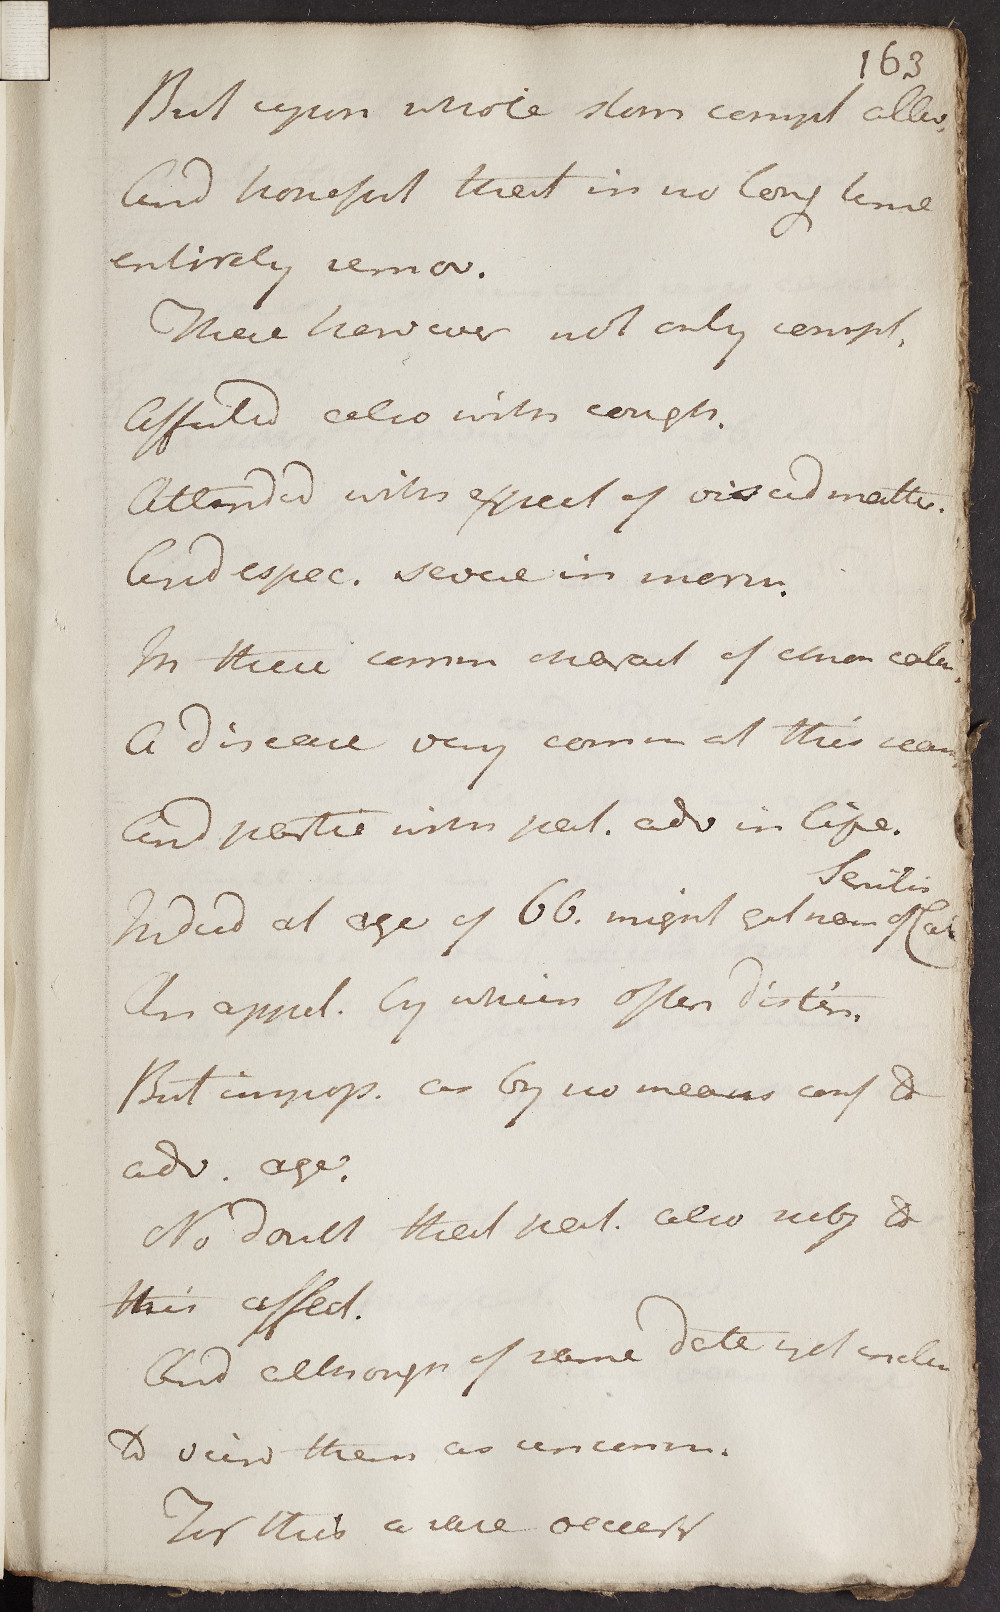 163
But upon whole stom compl allev.
And hopeful that in no long time
entirely remov.
There however not only compl.
Affected also with cough.
Attended with expect of viscid matter.
And espec. severe in morn.
In these comm charact of chron catar.
A disease very comm at this seas
And partic with pat. adv in life.
Senilis
Indeed at age of 66. might get nam of Cat
An appel. by which often distin.
But improp. as by no means conf to
adv. age.
No doubt that pat. also subj to
this affect.
And although of same date yet inclin
to view them as unconn.
For this a rare occurr